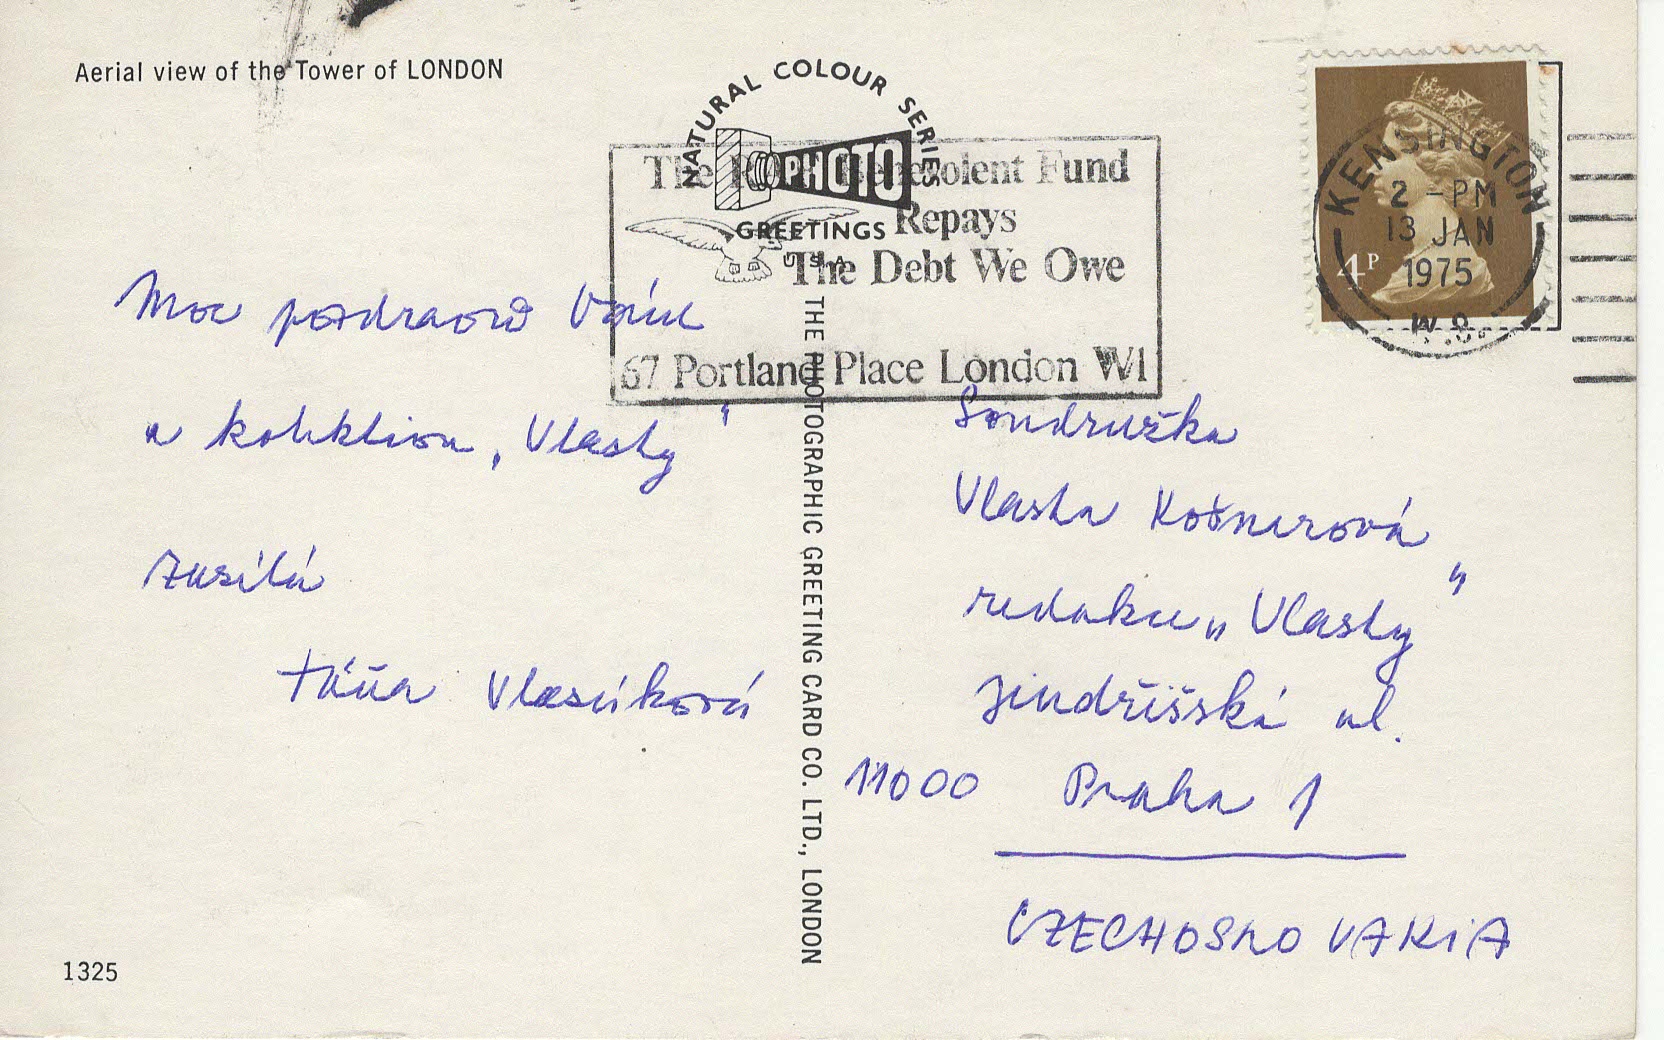 Aerial view of the Tower of LONDON
NATURAL COLOUR SERIES
PHOTO
GREETINGS
U.S.A.
The R.A.F. Benevolent Fund
Repays
The Debt We Owe
67 Portland Place London W1
KENSINGTON
2 - PM
13 JAN
1975
W.8.
4P
Moc pozdravů Vám
a kolektivu „Vlasty“
zasílá
Táňa Vlasáková
THE PHOTOGRAPHIC GREETING CARD CO. LTD., LONDON
Soudružka
Vlasta
redakce „Vlasty“
Jindřišská ul.
11000 Praha 1
CZECHOSLOVAKIA
1325